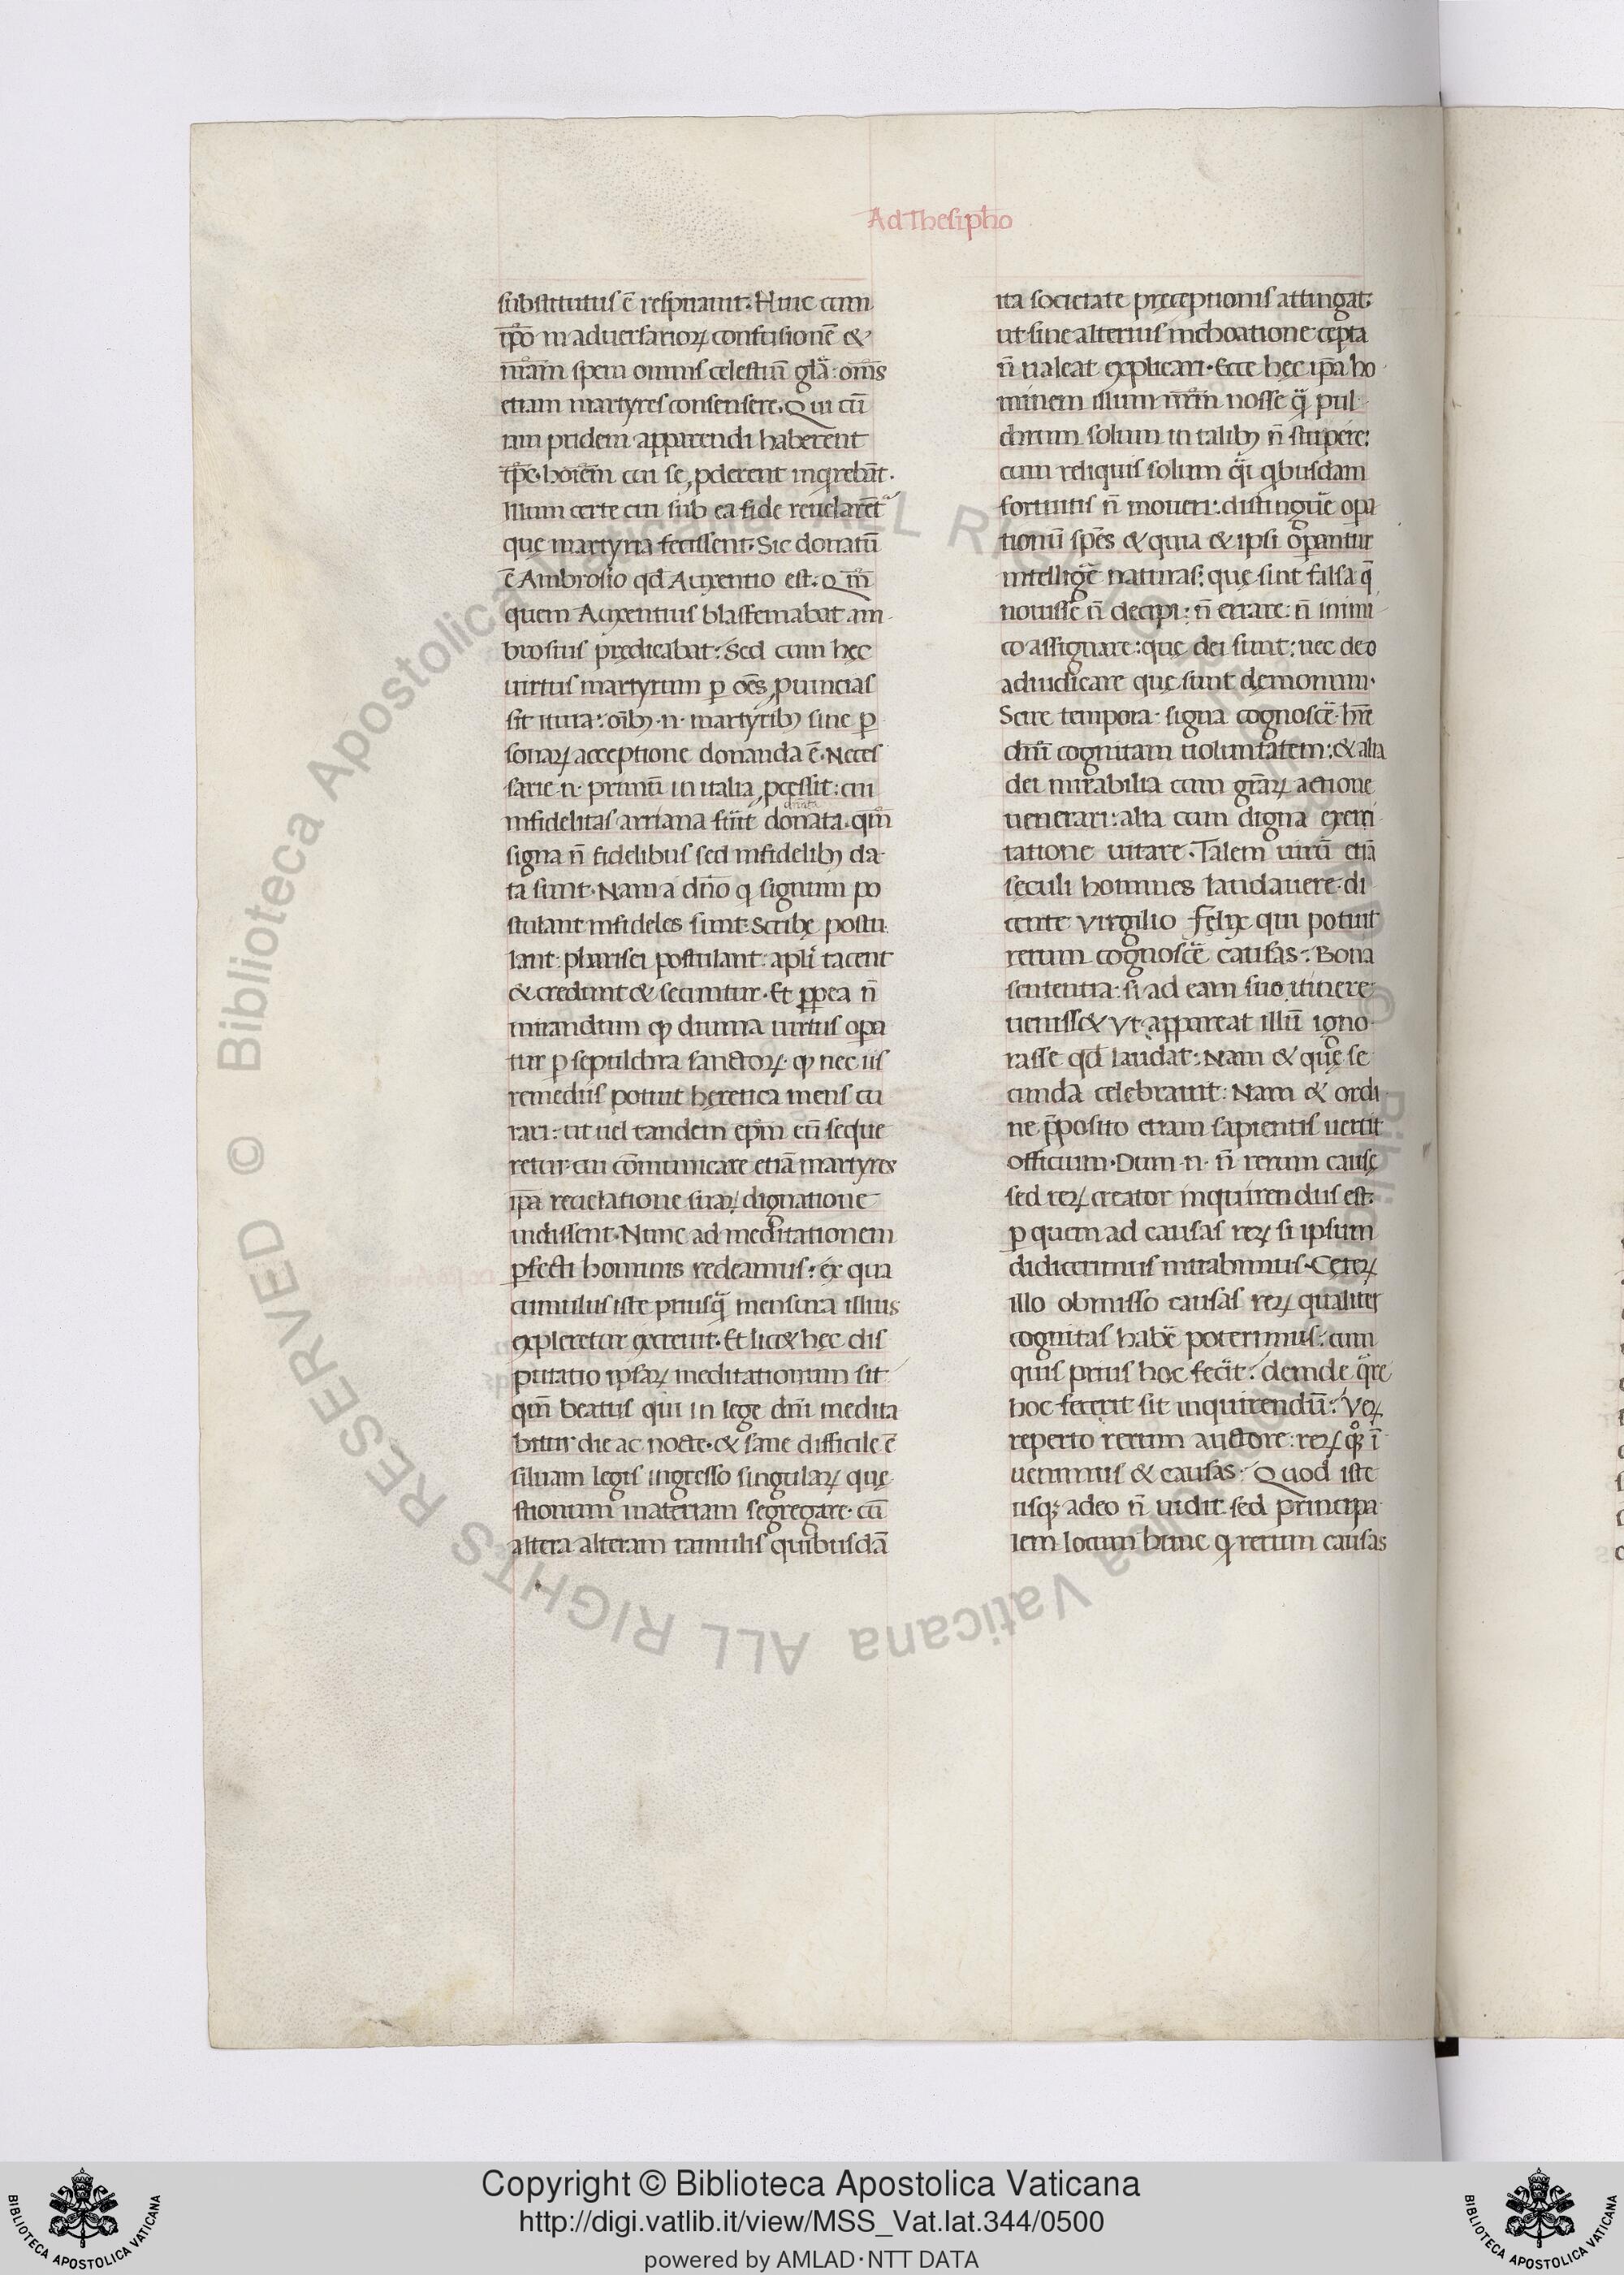 Ad Thesipho
substitutus ē respirauit. Hinc cum
ip̄o in aduersarioꝝ confusionē &
nr̄am spem omnis celestiū gl̄a: om̄s
etiam martyres consensere. Qui cū
iam pridem apparendi haberent
tp̄e. hoiēm cui se ꝓderent inqrebāt.
Illum certe cui sub ea fide reuelarēt
quę martyria fecissent. Sic donatū
ē Ambrosio qd Auxentio est. Qm̄
quem Auxentius blasfemabat am
brosius predicabat. Sed cum hęc
uirtus martyrum ꝑ oēs ꝓuincias
sit itura: oīb; .n. martyrib; sine ꝑ
sonaꝝ acceptione donanda ē. Neces
sarie .n. primū in italia ꝓcessit: cui
infidelitas arriana fūit donata. qm̄
signa n̄ fidelibus sed infidelib; da
ta sunt. Nam a dn̄o q signum po
stulant infideles sunt. Scribę postu
lant: pharisei postulant: apl̄i tacent
& credunt & secuntur. Et ꝓpea n̄
mirandum ꝙ diuina uirtus opa
tur ꝑ sepulchra sanctoꝝ. ꝙ nec iis
remediis potuit heretica mens cu
rari: ut uel tandem ep̄m eū seque
retur cui cōmunicare etiā martyres
ip̄a reuelatione suaꝝ dignatione
uidissent. Nunc ad meditationem
ꝑfecti hominis redeamus: ex qua
cumulus iste priusq̄ mensura illius
expleretur excreuit. Et lic& hęc dis
putatio ipsaꝝ meditationum sit
qm̄ beatus qui in lege dn̄i medita
bitur die ac nocte. & sane difficile ē
siluam legis ingresso singulaꝝ quę
stionum materiam segregare. cū
altera alteram ramulis quibusdā
ita societate pręceptionis attingat:
ut sine alterius inchoatione cępta
n̄ ualeat explicari. Ecce hęc ip̄a ho
minem illum nr̄m nosse q̄ pul
chrum solum in talib; n̄ stupere:
cum reliquis solum q̄i qbusdam
fortuitis n̄ moueri: distinguē opa
tionū spēs & quia & ipsi operantur
intelligē naturas: quę sint falsa q̄
nouisse n̄ decipi: n̄ errare: n̄ inimi
co assignare: quę dei sunt: nec deo
adiudicare quę sunt demonum.
Scire tempora. signa cognoscē. hr̄e
dn̄i cognitam uoluntatem: & alia
dei mirabilia cum gr̄aꝝ actione
uenerari: alia cum digna exem
tatione uitare. Talem uirū etiā
sęculi homines laudauere. di
cente Virgilio Felix qui potuit
rerum cognoscē causas. Bona
sententia: si ad eam suo itinere
ueniss& Vt appareat illū igno
rasse qd laudat. Nam & quę se
cunda celebrauit. Nam & ordi
ne p̄posito etiam sapientis uertit
officium. Dum .n. n̄ rerum causę
sed reꝝ creator inquirendus est.
ꝑ quem ad causas reꝝ si ipsum
didicerimus mirabimus. Ceteꝝ
illo obmisso causas reꝝ qualiter
cognitas habē poterimus: cum
quis prius hoc fecit: deinde qre
hoc fecerit sit inquirendū. Voꝝ
reperto rerum auctore: reꝝ qq; ī
uenimus & causas. Quod iste
usq; adeo n̄ uidit. sed principa
lem locum hunc q rerum causas
Copyright © Biblioteca Apostolica Vaticana
http://digi.vatlib.it/view/MSS_Vat.lat.344/0500
powered by AMLAD·NTT DATA